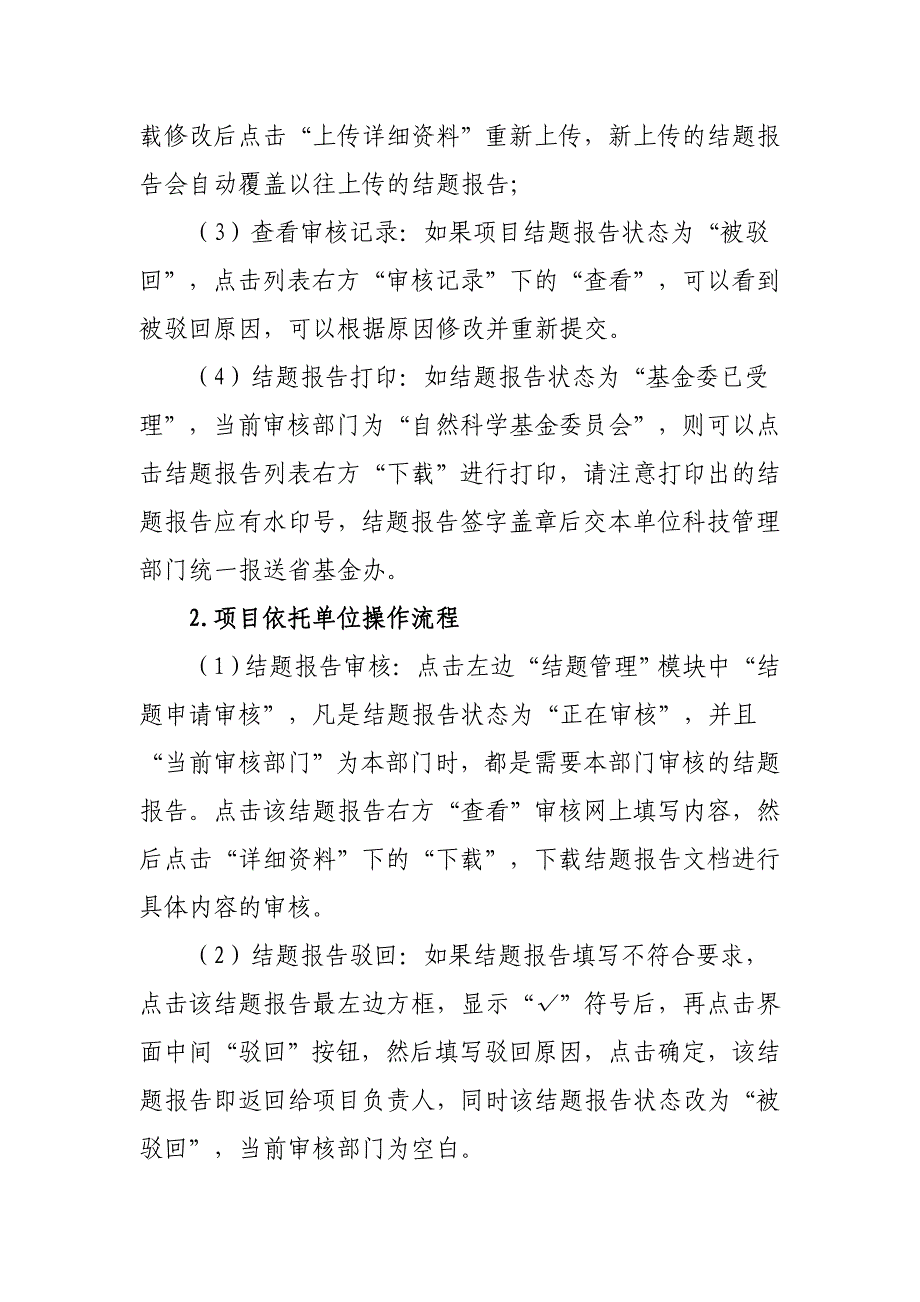 载修改后点击“上传详细资料”重新上传，新上传的结题报
告会自动覆盖以往上传的结题报告；
（3）查看审核记录：如果项目结题报告状态为“被驳
回”，点击列表右方“审核记录”下的“查看”，可以看到
被驳回原因，可以根据原因修改并重新提交。
（4）结题报告打印：如结题报告状态为“基金委已受
理”，当前审核部门为“自然科学基金委员会”，则可以点
击结题报告列表右方“下载”进行打印，请注意打印出的结
题报告应有水印号，结题报告签字盖章后交本单位科技管理
部门统一报送省基金办。
2.项目依托单位操作流程
（1）结题报告审核：点击左边“结题管理”模块中“结
题申请审核”，凡是结题报告状态为“正在审核”，并且
“当前审核部门”为本部门时，都是需要本部门审核的结题
报告。点击该结题报告右方“查看”审核网上填写内容，然
后点击“详细资料”下的“下载”，下载结题报告文档进行
具体内容的审核。
（2）结题报告驳回：如果结题报告填写不符合要求，
点击该结题报告最左边方框，显示“√”符号后，再点击界
面中间“驳回”按钮，然后填写驳回原因，点击确定，该结
题报告即返回给项目负责人，同时该结题报告状态改为“被
驳回”，当前审核部门为空白。